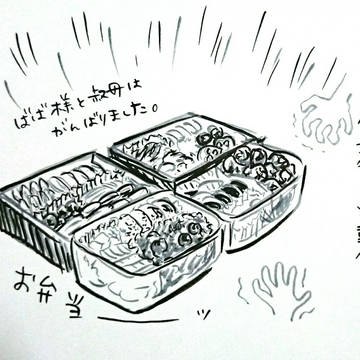 ばば様と叔母は
がんばりました。
お弁当――ッ